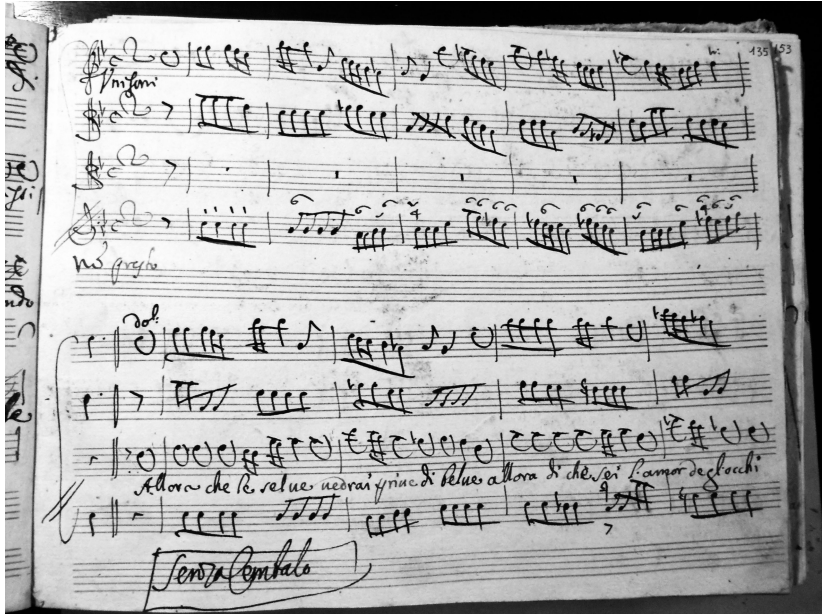 135 153
Unisoni
no presto
dol:
Allora che le selve vedrai prive di belve allora di che sei l'amor degl'occhi
Senza Cembalo